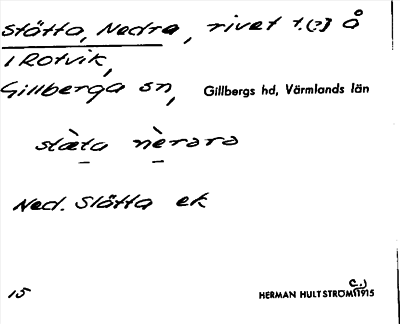 Slätta, Nedra, rivet t.(?) å
i Rotvik,
Gillberga sn, Gillbergs hd, Värmlands län
slæ̀ta nèrara
Ned. Slätta ek
15 HERMAN HULTSTRÖM 1915